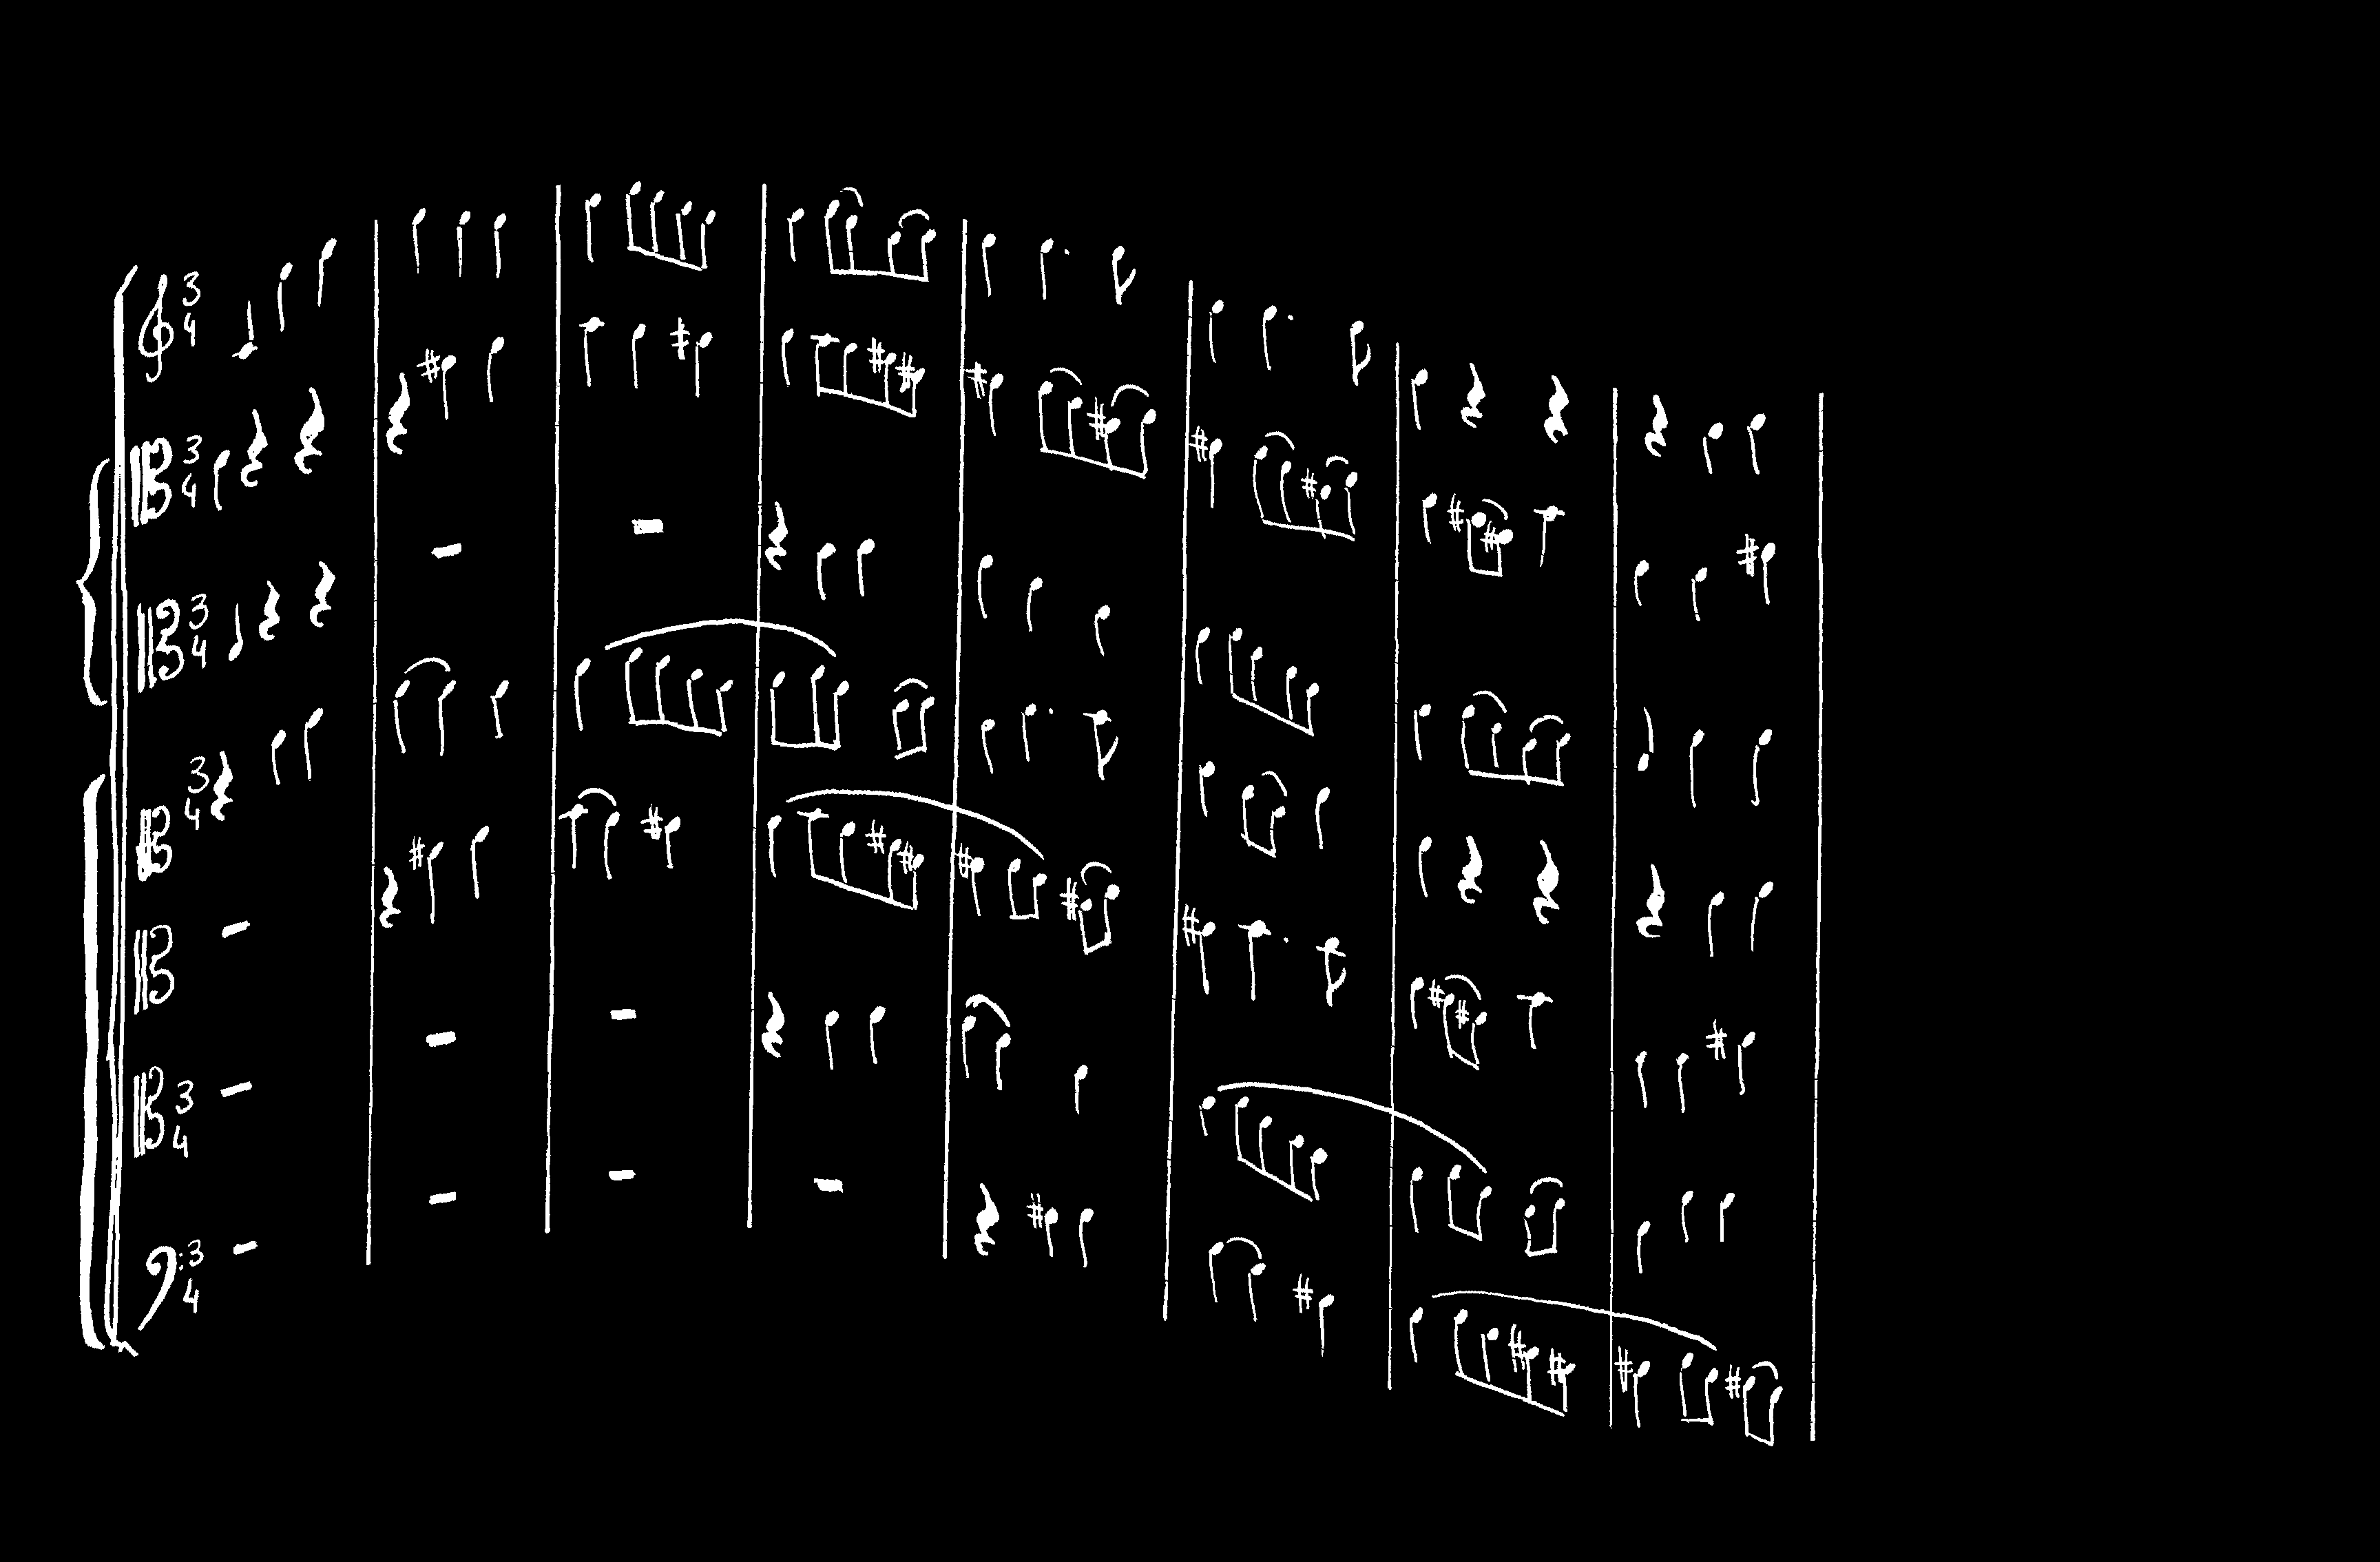 3
4
3
4
3
4
3
4
3
4
3
4